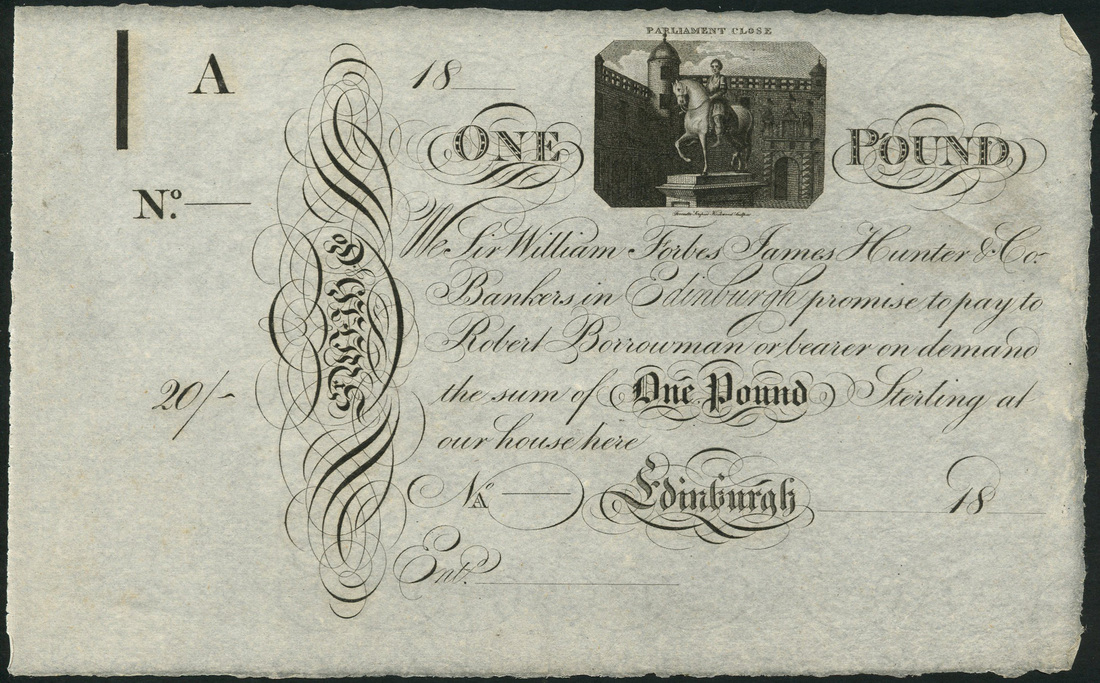 A
18
PARLIAMENT CLOSE
ONE POUND
No.
We Sir William Forbes James Hunter & Co.
Bankers in Edinburgh promise to pay to
Robert Borrowman or bearer on demand
20/-
the sum of One Pound Sterling at
our house here
No
A
Edinburgh 18
Entd.